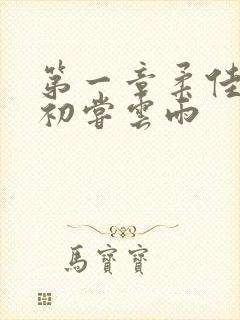 第一章柔佳
初嘗雲雨
馬寶寶